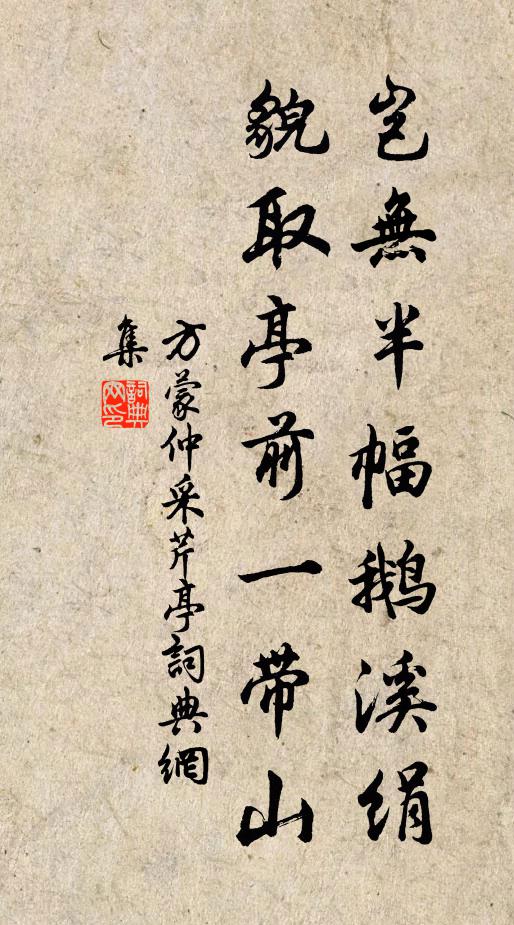 岂無半幅鹅溪绢
貌取亭前一带山
方蒙仲采芹亭詞典網
集
詞典網印